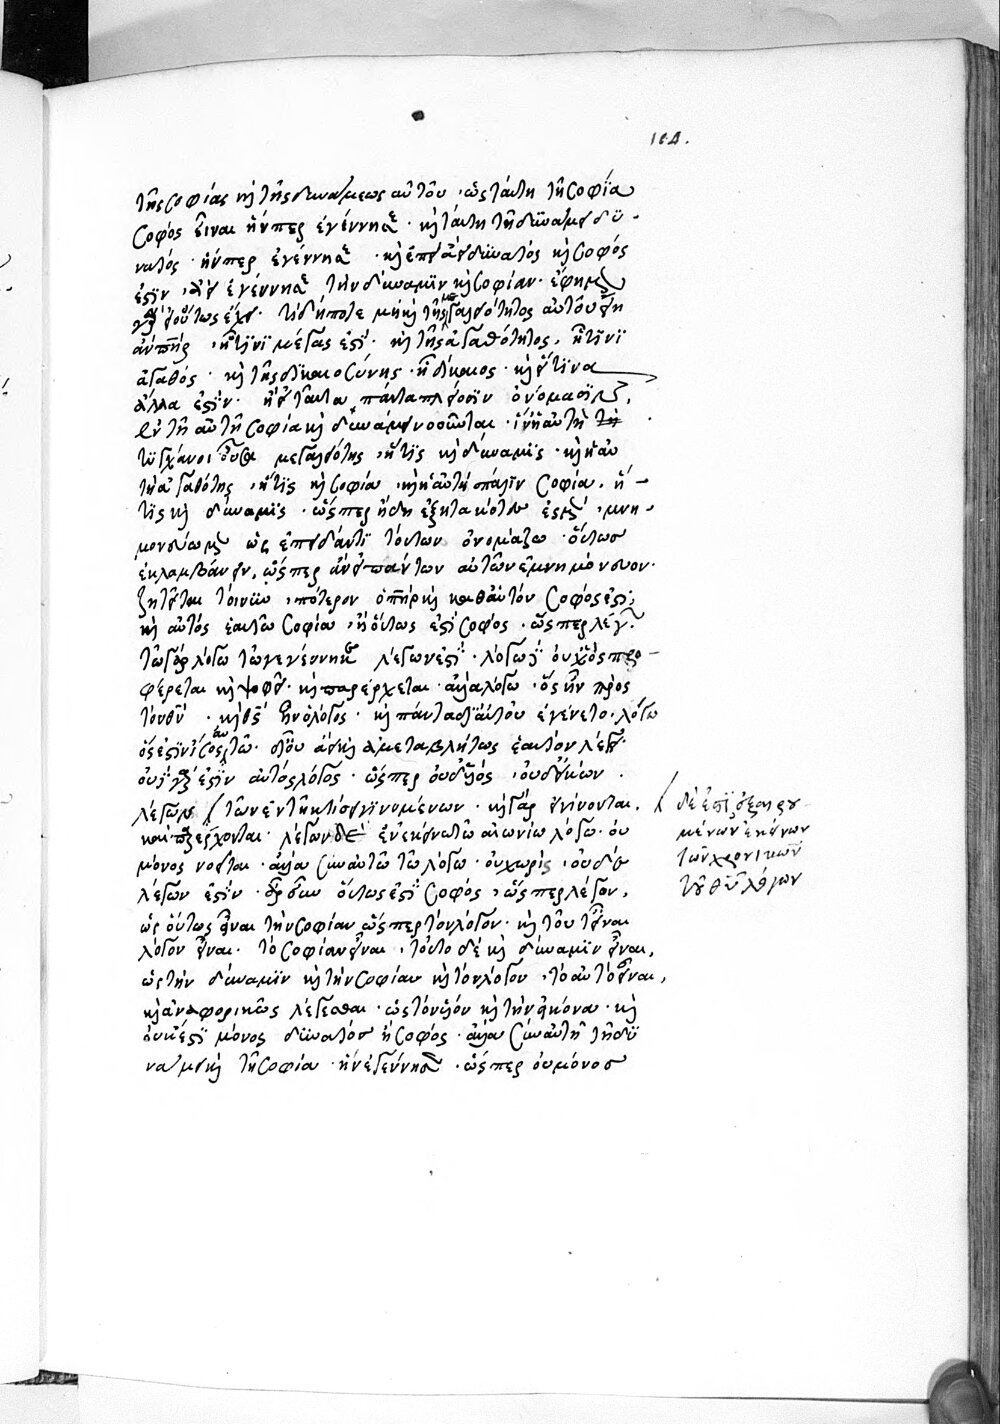 164.
τῆς σοφίας καὶ τῆς δυνάμεως αὐτοῦ · ὡς ταύτῃ τῇ σοφίᾳ
σοφὸς εἶναι ἥνπερ ἐγέννησε · καὶ ταύτῃ τῇ δυνάμει δυ-
νατός · ἥνπερ ἐγέννησε · καὶ δυνατός καὶ σοφός
ἐστιν · ἐγέννησε τὴν δύναμιν καὶ σοφίαν ·
οὕτως ἔχει · τί δήποτε μὴ καὶ τῆς μεγαλειότητος αὐτοῦ
ᾗτινι μέγας ἐστί · καὶ τῆς ἀγαθότητος, ᾗτινι
ἀγαθός · καὶ τῆς δικαιοσύνης · ᾗ δίκαιος · καὶ εἴ τινα
ἄλλα ἐστίν · ἢ εἰ ταῦτα πάντα πλείοσιν ὀνόμασιν
ἐν τῇ αὐτῇ σοφίᾳ καὶ δυνάμει νοοῦνται · ἵν' ἡ αὐτὴ
τυγχάνοι οὖσα μεγαλειότης · ἥτις καὶ δύναμις · καὶ ἡ αὐ
τὴ ἀγαθότης · ἥτις καὶ σοφία · καὶ ἡ αὐτὴ πάλιν σοφία · ἥ-
τις καὶ δύναμις · ὥσπερ ἤδη · μνη-
μονεύωμεν ὡς τούτων ὀνομάζω · οὕτως
ἐκλαμβάνειν, ὥσπερ ἂν εἰ πάντων αὐτῶν ἐμνημόνευον ·
ζητεῖται τοίνυν · πότερον ὁ πατὴρ καὶ καθ' αὑτὸν σοφός ἐστι ·
καὶ αὐτὸς ἑαυτῷ σοφία · ἢ οὕτως ἐστὶ σοφός · ὥσπερ λέγων ·
τῷ γὰρ λόγῳ τῷ γεγεννημένῳ λέγων ἐστί · λόγῳ οὐχ ὃς προ-
φέρεται καὶ ψοφεῖ · καὶ παρέρχεται · ἀλλὰ λόγῳ · ὃς ἦν πρὸς
τὸν θν · καὶ θς ἦν ὁ λόγος · καὶ πάντα δι' αὐτοῦ ἐγένετο · λόγῳ
ὅς ἐστιν ἴσος ἑαυτῷ · δι' οὗ ἀεὶ καὶ ἀμεταβλήτως ἑαυτὸν λέγει ·
οὐ γάρ ἐστιν αὐτὸς λόγος · ὥσπερ οὐδὲ υἱός · οὐδὲ εἰκών ·
λέγων τῶν ἐν τῇ κτίσει γινομένων · καὶ γὰρ γίνονται,
καὶ παρέρχονται · λέγων δὲ ἐν ἐκείνῳ τῷ αἰωνίῳ λόγῳ · οὐ
μόνος νοεῖται · ἀλλὰ σὺν αὐτῷ τῷ λόγῳ · οὗ χωρὶς · οὐδὲ
λέγων ἐστίν · οὕτως ἐστὶ σοφός · ὥσπερ λέγων,
ὡς οὕτως εἶναι τὴν σοφίαν ὥσπερ τὸν λόγον · καὶ τοῦτ' εἶναι
λόγον εἶναι · τὸ σοφίαν εἶναι · τοῦτο δὲ καὶ δύναμιν εἶναι,
ὡς τὴν δύναμιν καὶ τὴν σοφίαν καὶ τὸν λόγον · τὸ αὐτὸ εἶναι,
καὶ ἀναφορικῶς λέγεσθαι · ὡς τὸν υἱὸν καὶ τὴν εἰκόνα · καὶ
οὐκ ἔστι μόνος δυνατὸς ἢ σοφός · ἀλλὰ σὺν αὐτῇ τῇ δυ
νάμει καὶ τῇ σοφίᾳ · ἣν ἐγέννησεν · ὥσπερ οὐ μόνος
μένων ἐκείνων
τῶν χρονικῶν
τοῦ θυ λόγων